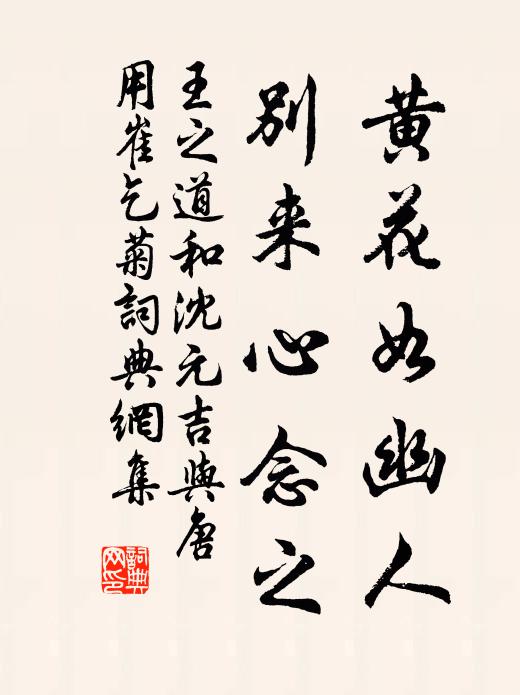 黄花如幽人
别来心念之
王之道和沈元吉與唐
用崔乞菊詞典網集
詞典网印